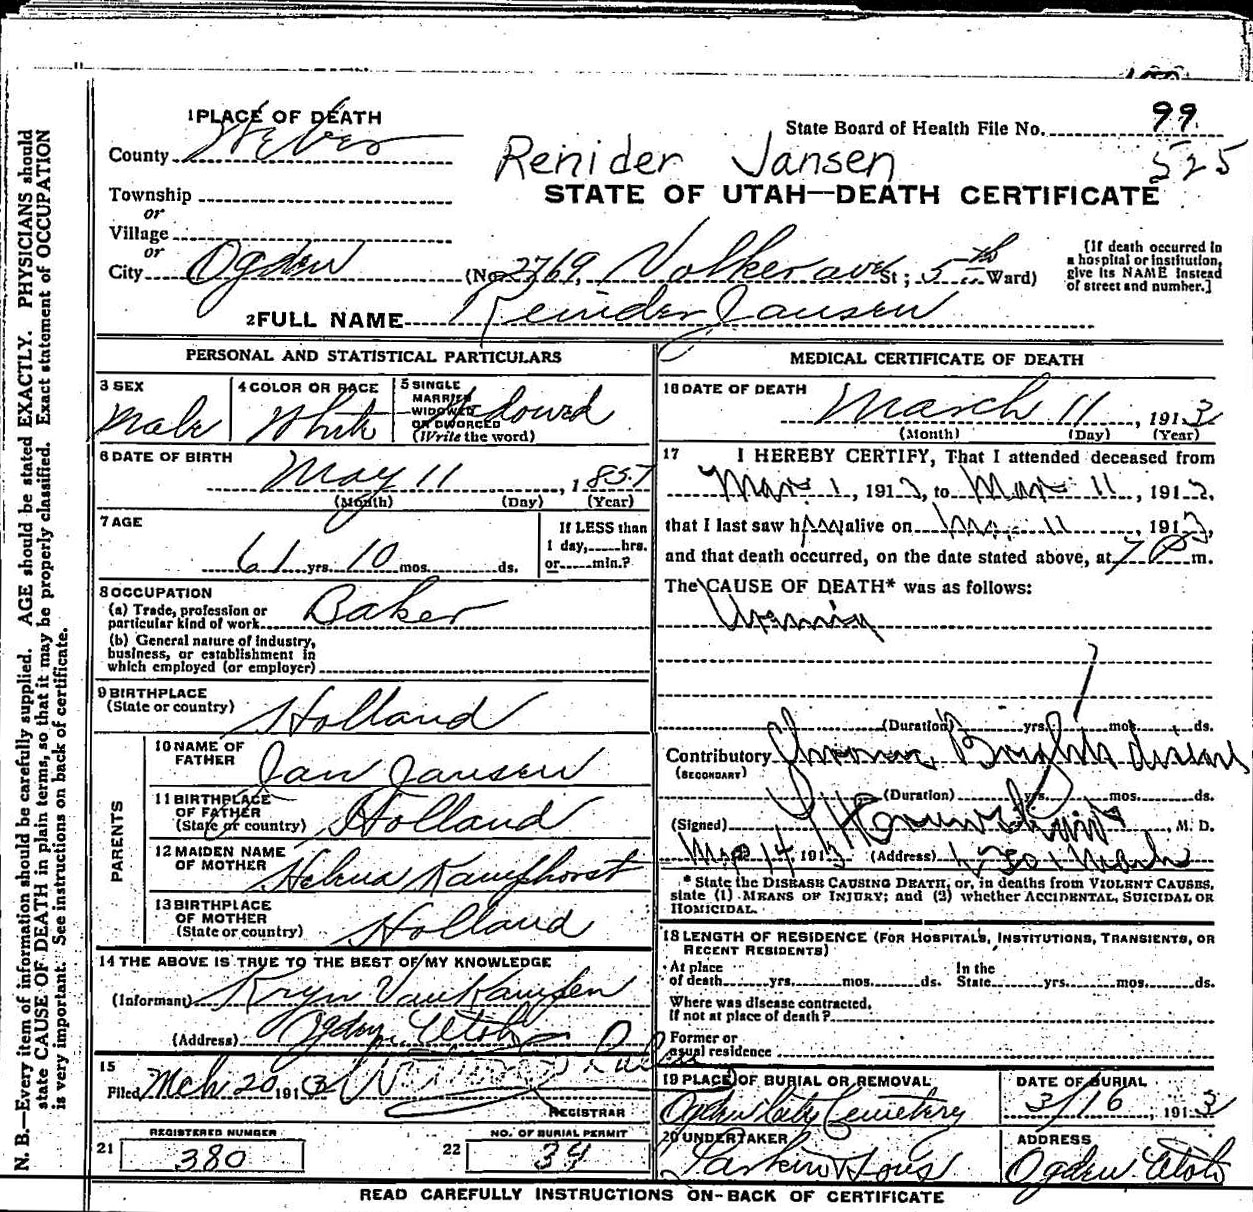 1 PLACE OF DEATH
State Board of Health File No. 99
County Weber
Renider Jansen 525
Township
STATE OF UTAH—DEATH CERTIFICATE
or
Village
or
City Ogden (No. 2769, Volker ave St; 5th Ward)
[If death occurred in a hospital or institution, give its NAME instead of street and number.]
2 FULL NAME Reinder Jansen
PERSONAL AND STATISTICAL PARTICULARS
3 SEX Male
4 COLOR OR RACE White
5 SINGLE MARRIED WIDOWED OR DIVORCED (Write the word) Widowed
6 DATE OF BIRTH May 11, 1857
(Month) (Day) (Year)
7 AGE 61 yrs. 10 mos. ds.
If LESS than 1 day, hrs. or min.?
8 OCCUPATION
(a) Trade, profession or particular kind of work Baker
(b) General nature of industry, business, or establishment in which employed (or employer)
9 BIRTHPLACE (State or country) Holland
PARENTS
10 NAME OF FATHER Jan Jansen
11 BIRTHPLACE OF FATHER (State or country) Holland
12 MAIDEN NAME OF MOTHER Helena Kamphorst
13 BIRTHPLACE OF MOTHER (State or country) Holland
14 THE ABOVE IS TRUE TO THE BEST OF MY KNOWLEDGE
(Informant) Kryn VanKampen
(Address) Ogden, Utah
15 Filed Mch 20 1913
REGISTRAR
21 REGISTERED NUMBER 380
22 NO. OF BURIAL PERMIT 34
MEDICAL CERTIFICATE OF DEATH
16 DATE OF DEATH March 11, 1913
(Month) (Day) (Year)
17 I HEREBY CERTIFY, That I attended deceased from
Mar 1, 1913, to Mar 11, 1913,
that I last saw him alive on Mar 11, 1913,
and that death occurred, on the date stated above, at 7 P m.
The CAUSE OF DEATH* was as follows:
Uremia
(Duration) yrs. mos. ds.
Contributory Chronic Brights disease
(SECONDARY)
(Duration) yrs. mos. ds.
(Signed) M. D.
Mar 14 1913 (Address) Wash
* State the DISEASE CAUSING DEATH, or, in deaths from VIOLENT CAUSES, state (1) MEANS OF INJURY; and (2) whether ACCIDENTAL, SUICIDAL OR HOMICIDAL.
18 LENGTH OF RESIDENCE (FOR HOSPITALS, INSTITUTIONS, TRANSIENTS, OR RECENT RESIDENTS)
At place of death yrs. mos. ds. In the State yrs. mos. ds.
Where was disease contracted, If not at place of death?
Former or usual residence
19 PLACE OF BURIAL OR REMOVAL Ogden City Cemetery
DATE OF BURIAL 3/16, 1913
20 UNDERTAKER Larkin & Sons
ADDRESS Ogden Utah
READ CAREFULLY INSTRUCTIONS ON BACK OF CERTIFICATE
N. B.—Every item of information should be carefully supplied. AGE should be stated EXACTLY. PHYSICIANS should
state CAUSE OF DEATH in plain terms, so that it may be properly classified. Exact statement of OCCUPATION
is very important. See instructions on back of certificate.